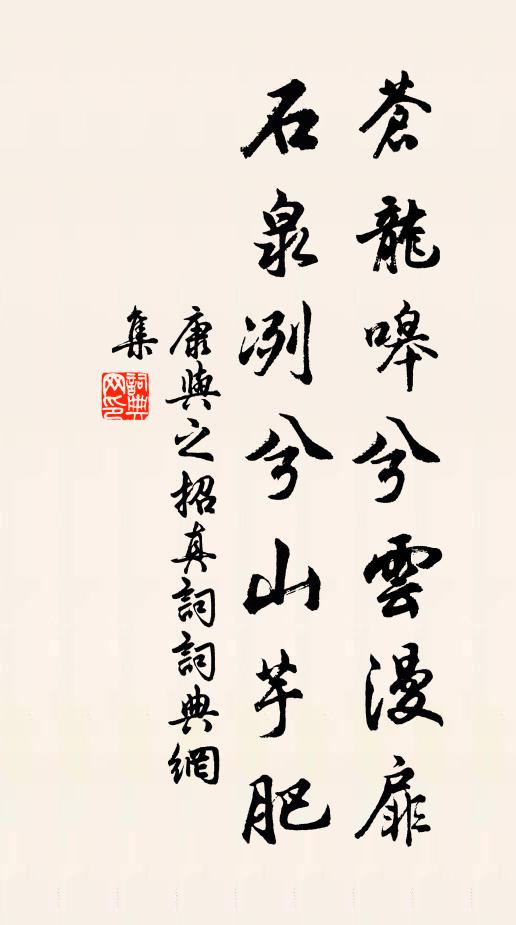 蒼龍嗥兮雲漫扉
石泉洌兮山芋肥
康與之招真詞詞典網
集
詞典网印